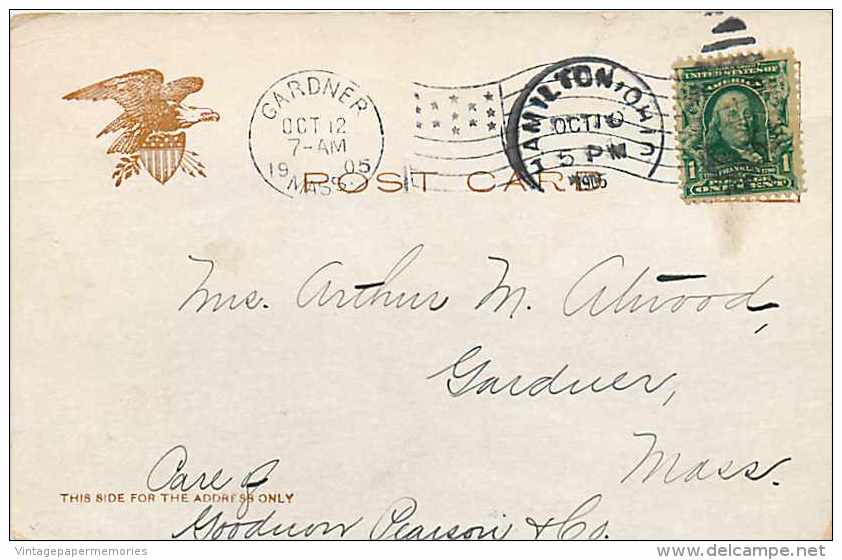 GARDNER
OCT 12
7-AM
1905
MASS.
HAMILTON, OHIO
OCT 10
5 PM
1905
UNITED STATES OF
AMERICA
1 FRANKLIN 1
ONE CENT
POST CARD
Mrs. Arthur M. Atwood,
Gardner,
Mass.
Care of
THIS SIDE FOR THE ADDRESS ONLY
Goodnow Pearson & Co.
Vintagepapermemories
http://www.delcampe.net